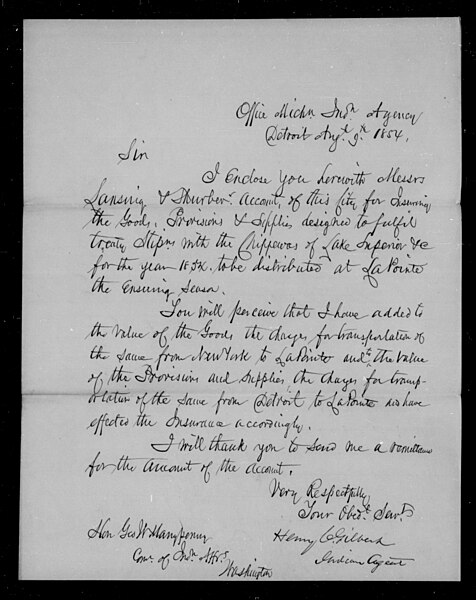 Office Michn. Indn. Agency
Detroit Augt. 9th. 1854.
Sir
I Enclose You herewith Messrs
Lansing & Thurbers. Account, of this City for Insuring
the Goods, Provisions & Supplies designed to fulfil
treaty Stipns with the Chippewas of Lake Superior &c
for the year 1854. to be distributed at La Pointe
the Ensuing Season.
You will perceive that I have added to
the value of the Goods the Charges for transportation of
the Same from New York to La Pointe and to the value
of the Provisions and Supplies, the Charges for transp-
ortation of the Same from Detroit to La Pointe and have
effected the Insurance accordingly.
I will thank you to Send me a remittance
for the Amount of the Account.
Very Respectfully
Your Obedt. Servt.
Henry C Gilbert
Indian Agent
Hon Geo W Manypenny
Com. of Indn. Affs.
Washington